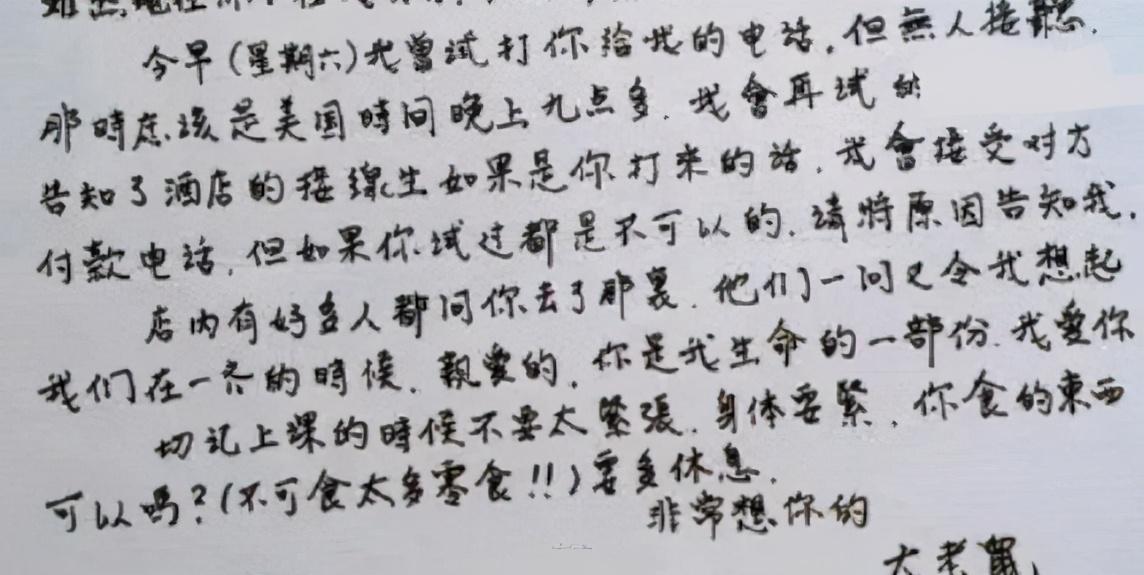 今早(星期六)我曾試打你給我的电話,但無人接聽.
那時應該是美国時间晚上九点多.我會再試的
告知了酒店的接線生如果是你打来的話,我會接受对方
付款电話,但如果你试过都是不可以的.請将原因告知我.
店内有好多人都问你去了那裏.他们一问又令我想起
我们在一齐的時候.親愛的,你是我生命的一部份.我爱你
切记上課的時候不要太緊張.身体要緊,你食的東西
可以吗?(不可食太多零食!!)要多休息.
非常想你的
大老鼠